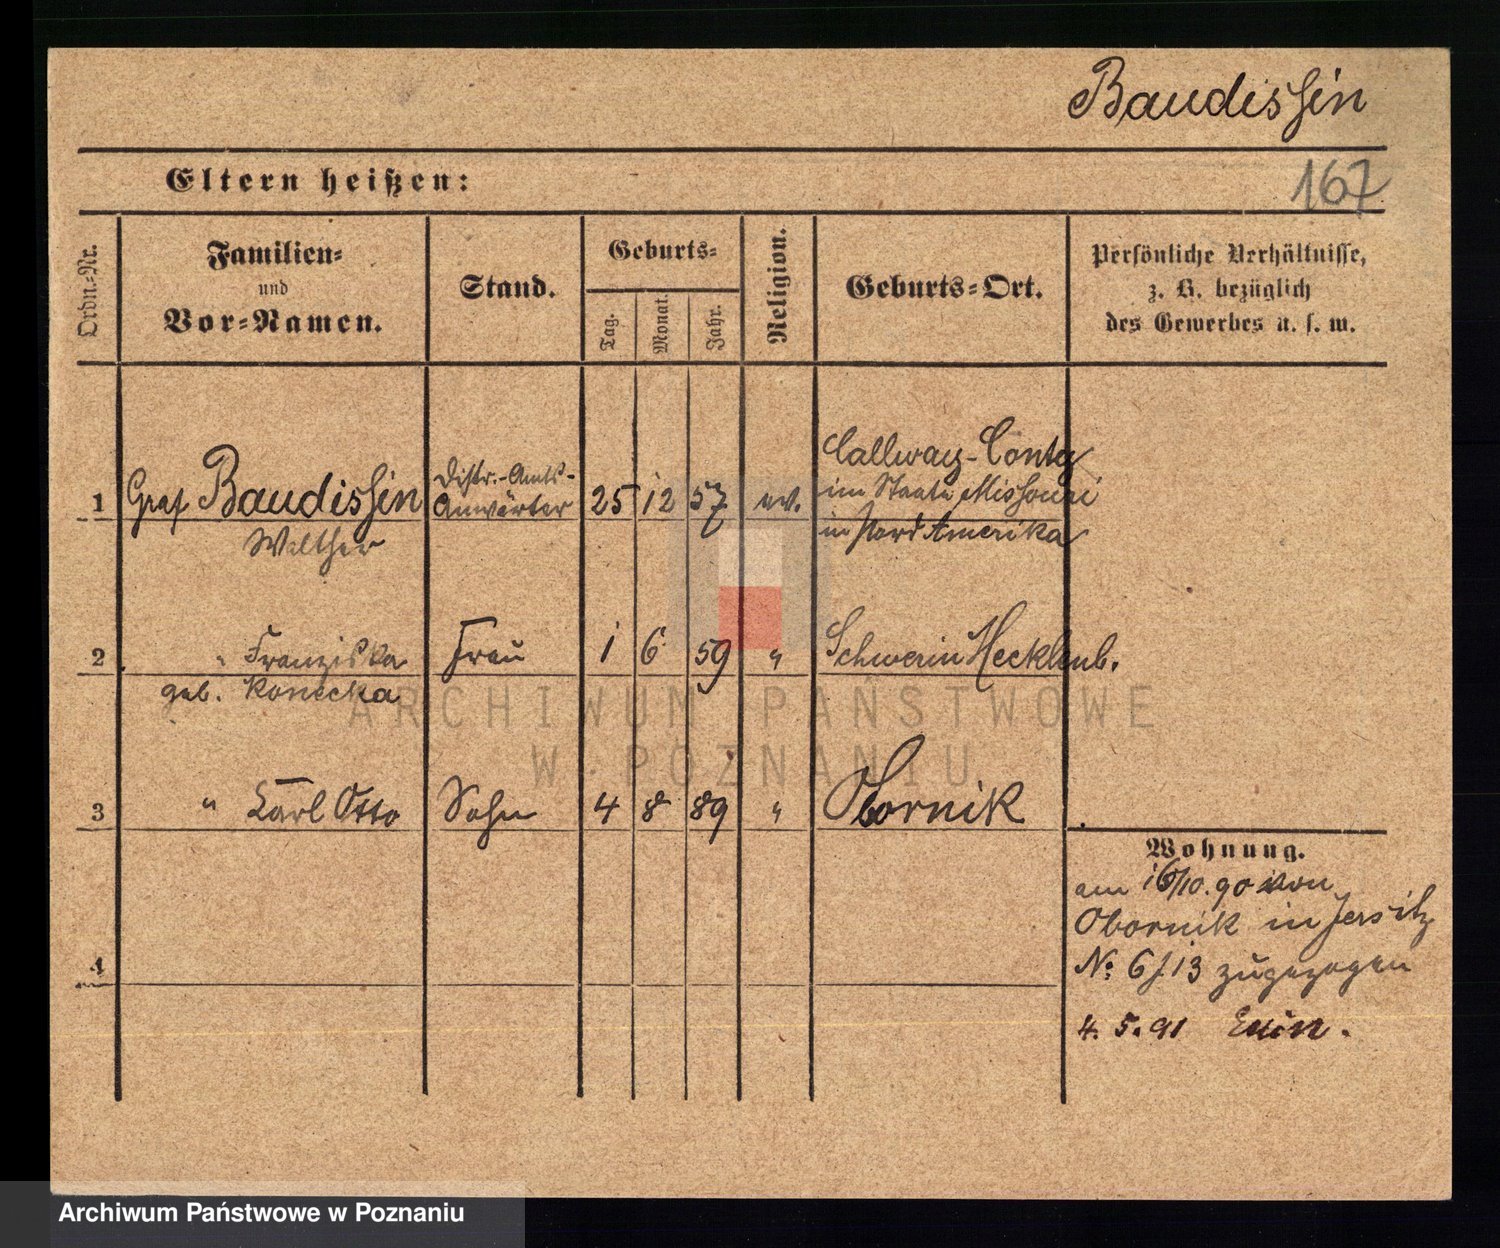 Baudissin
Eltern heißen:
167
Ordn.-Nr.
Familien-
und
Vor-Namen.
Stand.
Geburts-
Tag.
Monat.
Jahr.
Religion.
Geburts-Ort.
Persönliche Verhältnisse,
z. B. bezüglich
des Gewerbes u. s. w.
1 Graf Baudissin
Walther
Distr.-Amts-
Anwärter
25 12 57 ev.
Callway-Conty
im Staate Missouri
in Nord Amerika
2 " Franziska
geb. Konecka
Frau 1 6 59 " Schwerin Mecklenb.
3 " Karl Otto Sohn 4 8 89 " Obornik
4
Wohnung.
am 16/10. 90 von
Obornik in Jersitz
No: 6 f. 13 zugezogen
4. 5. 91
ARCHIWUM PAŃSTWOWE
W POZNANIU
Archiwum Państwowe w Poznaniu